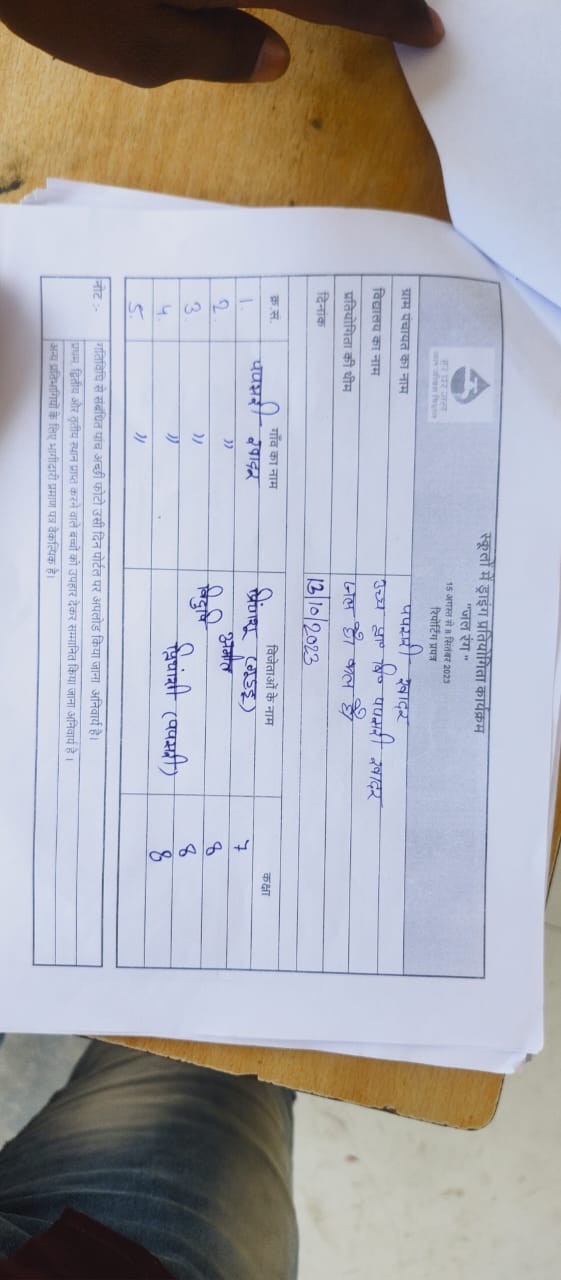 स्कूलों में ड्राइंग प्रतियोगिता कार्यक्रम
"जल रंग"
15 अगस्त से 8 सितंबर 2023
रिपोर्टिंग प्रपत्र
ग्राम पंचायत का नाम पपसरी खादर
विद्यालय का नाम उच्च प्रा० वि० पपसरी खादर
प्रतियोगिता की थीम जल ही कल है
दिनांक 13/10/2023
क्र.सं. गाँव का नाम विजेताओं के नाम कक्षा
1. पपसरी खादर 7
2. " अंकित 8
3. " 8
4. " (पपसरी) 8
5. "
नोट :- गतिविधि से संबंधित पांच अच्छी फोटो उसी दिन पोर्टल पर अपलोड किया जाना अनिवार्य है।
प्रथम, द्वितीय और तृतीय स्थान प्राप्त करने वाले बच्चों को उपहार देकर सम्मानित किया जाना अनिवार्य है।
अन्य प्रतिभागियों के लिए भागीदारी प्रमाण पत्र वैकल्पिक है।